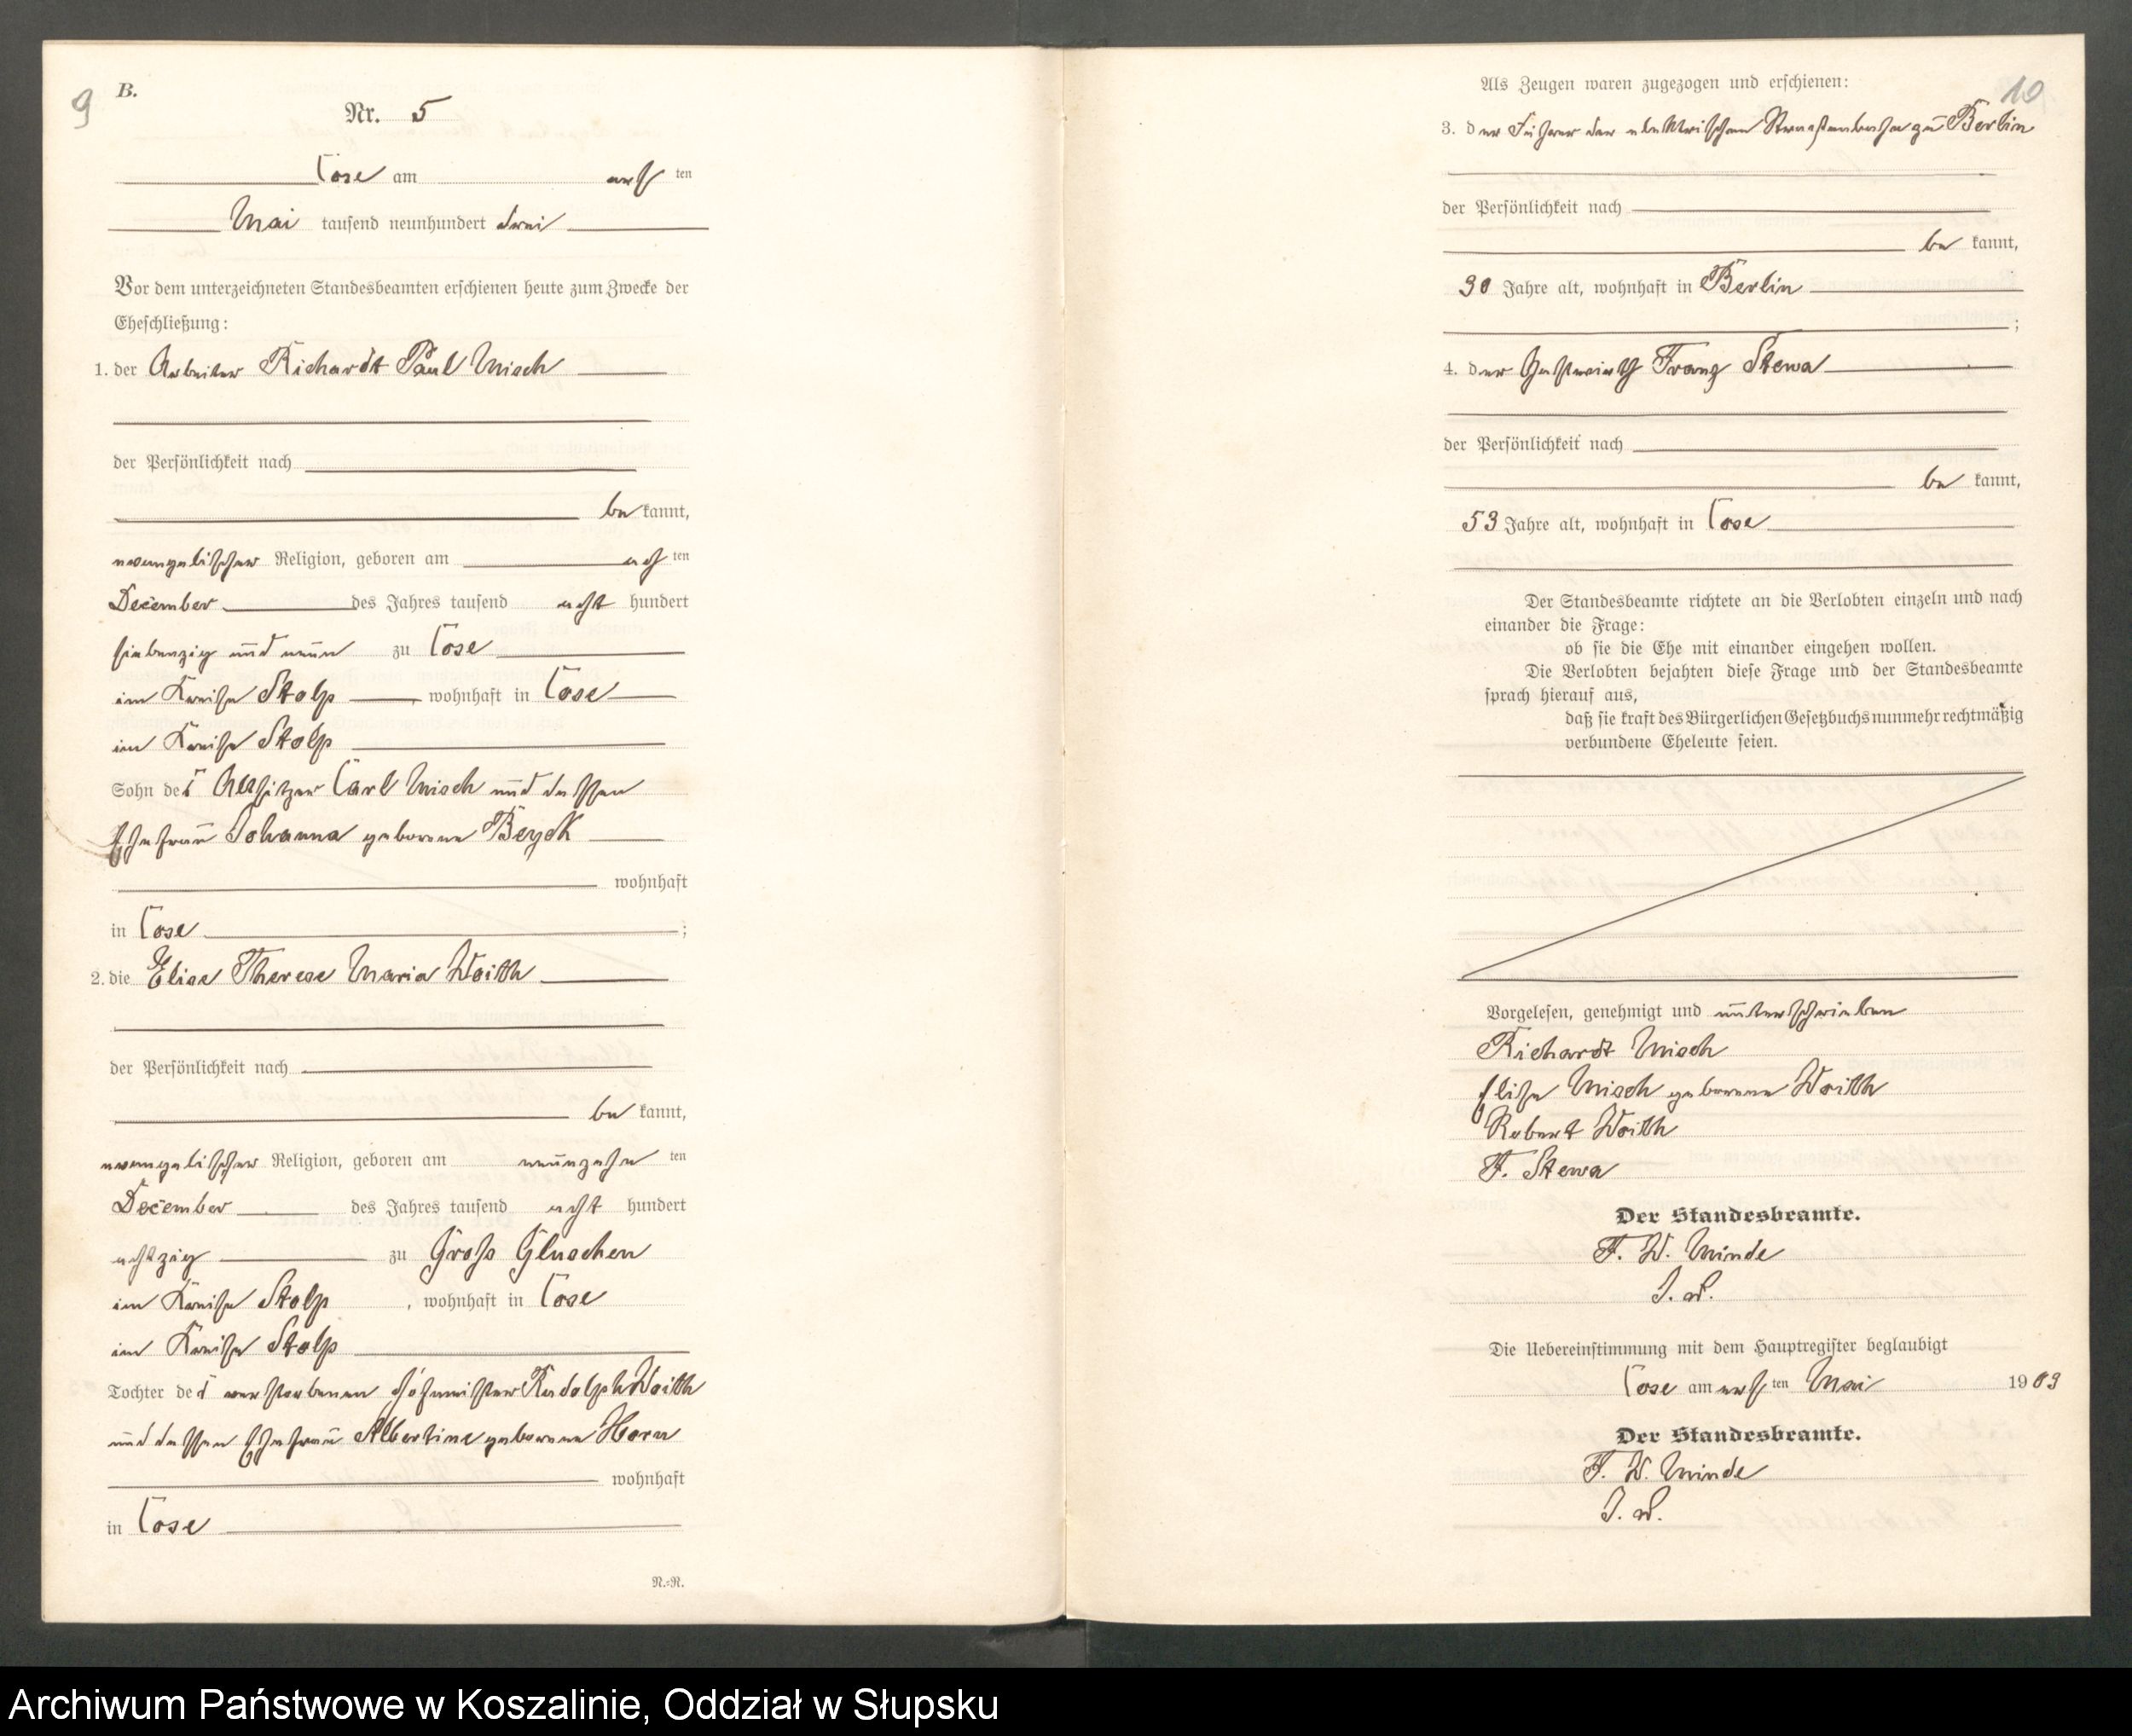 9
B.
Nr. 5
Cose am ersten
Mai tausend neunhundert drei
Vor dem unterzeichneten Standesbeamten erschienen heute zum Zwecke der
Eheschließung:
1. der Arbeiter Richardt Paul Misch
der Persönlichkeit nach
bekannt,
evangelischer Religion, geboren am achten
December des Jahres tausend acht hundert
siebenzig und neun zu Cose
im Kreise Stolp wohnhaft in Cose
im Kreise Stolp
Sohn des Altsitzer Carl Misch und dessen
Ehefrau Johanna geborene Beyck
wohnhaft
in Cose;
2. die Elise Therese Maria Woith
der Persönlichkeit nach
bekannt,
evangelischer Religion, geboren am neunzehnten
December des Jahres tausend acht hundert
achtzig zu Gross Gluschen
im Kreise Stolp, wohnhaft in Cose
im Kreise Stolp
Tochter des verstorbenen Hofmeister Rudolph Woith
und dessen Ehefrau Albertine geborene Horn
wohnhaft
in Cose
N.=N.
10
Als Zeugen waren zugezogen und erschienen:
3. der Führer der elektrischen Straßenbahn zu Berlin
der Persönlichkeit nach
bekannt,
30 Jahre alt, wohnhaft in Berlin
;
4. der Gastwirth Franz Stewa
der Persönlichkeit nach
bekannt,
53 Jahre alt, wohnhaft in Cose
Der Standesbeamte richtete an die Verlobten einzeln und nach
einander die Frage:
ob sie die Ehe mit einander eingehen wollen.
Die Verlobten bejahten diese Frage und der Standesbeamte
sprach hierauf aus,
daß sie kraft des Bürgerlichen Gesetzbuchs nunmehr rechtmäßig
verbundene Eheleute seien.
Vorgelesen, genehmigt und unterschrieben
Richardt Misch
Elise Misch geborene Woith
Robert Woith
F. Stewa
Der Standesbeamte.
F. W. Minde
I. V.
Die Uebereinstimmung mit dem Hauptregister beglaubigt
Cose am ersten Mai 1903
Der Standesbeamte.
F. W. Minde
I. V.
Archiwum Państwowe w Koszalinie, Oddział w Słupsku